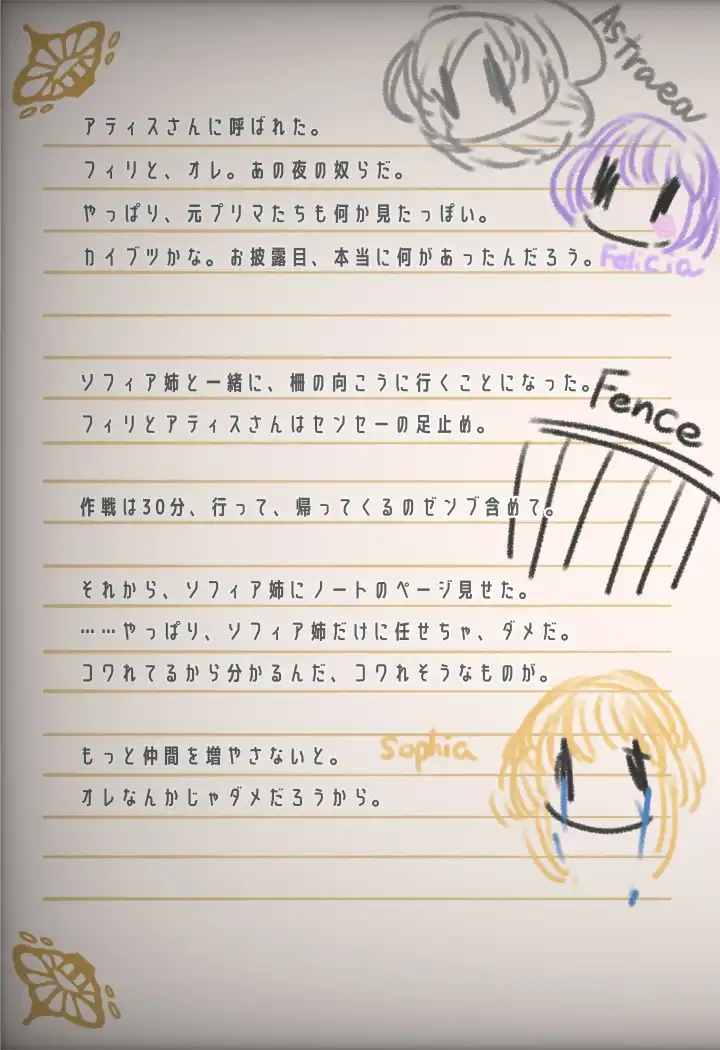 Astraea
アティスさんに呼ばれた。
フィリと、オレ。あの夜の奴らだ。
やっぱり、元プリマたちも何か見たっぽい。
カイブツかな。お披露目、本当に何があったんだろう。
Felicia
ソフィア姉と一緒に、柵の向こうに行くことになった。
Fence
フィリとアティスさんはセンセーの足止め。
作戦は30分、行って、帰ってくるのゼンブ含めて。
それから、ソフィア姉にノートのページ見せた。
……やっぱり、ソフィア姉だけに任せちゃ、ダメだ。
コワれてるから分かるんだ、コワれそうなものが。
もっと仲間を増やさないと。
Sophia
オレなんかじゃダメだろうから。